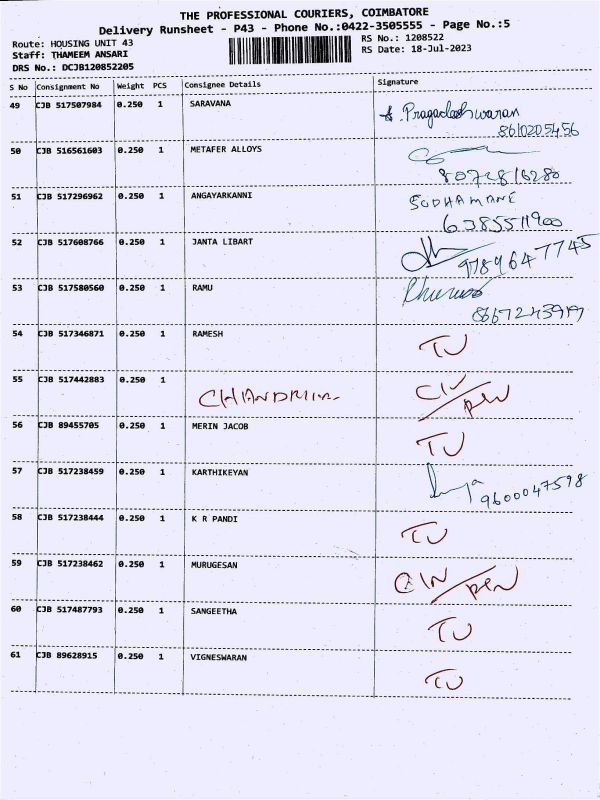 THE PROFESSIONAL COURIERS, COIMBATORE
Delivery Runsheet - P43 - Phone No.:0422-3505555 - Page No.:5
Route: HOUSING UNIT 43
RS No.: 1208522
Staff: THAMEEM ANSARI
RS Date: 18-Jul-2023
DRS No.: DCJB120852205
S No Consignment No Weight PCS Consignee Details Signature
49 CJB 517507984 0.250 1 SARAVANA
8610205456
50 CJB 516561603 0.250 1 METAFER ALLOYS
8072816280
51 CJB 517296962 0.250 1 ANGAYARKANNI SUDHAMANI
6385511900
52 CJB 517608766 0.250 1 JANTA LIBART 9789647745
53 CJB 517580560 0.250 1 RAMU
54 CJB 517346871 0.250 1 RAMESH TU
55 CJB 517442883 0.250 1
56 CJB 89455705 0.250 1 MERIN JACOB TU
57 CJB 517238459 0.250 1 KARTHIKEYAN 9600047598
58 CJB 517238444 0.250 1 K R PANDI TU
59 CJB 517238462 0.250 1 MURUGESAN
60 CJB 517487793 0.250 1 SANGEETHA TU
61 CJB 89628915 0.250 1 VIGNESWARAN TU